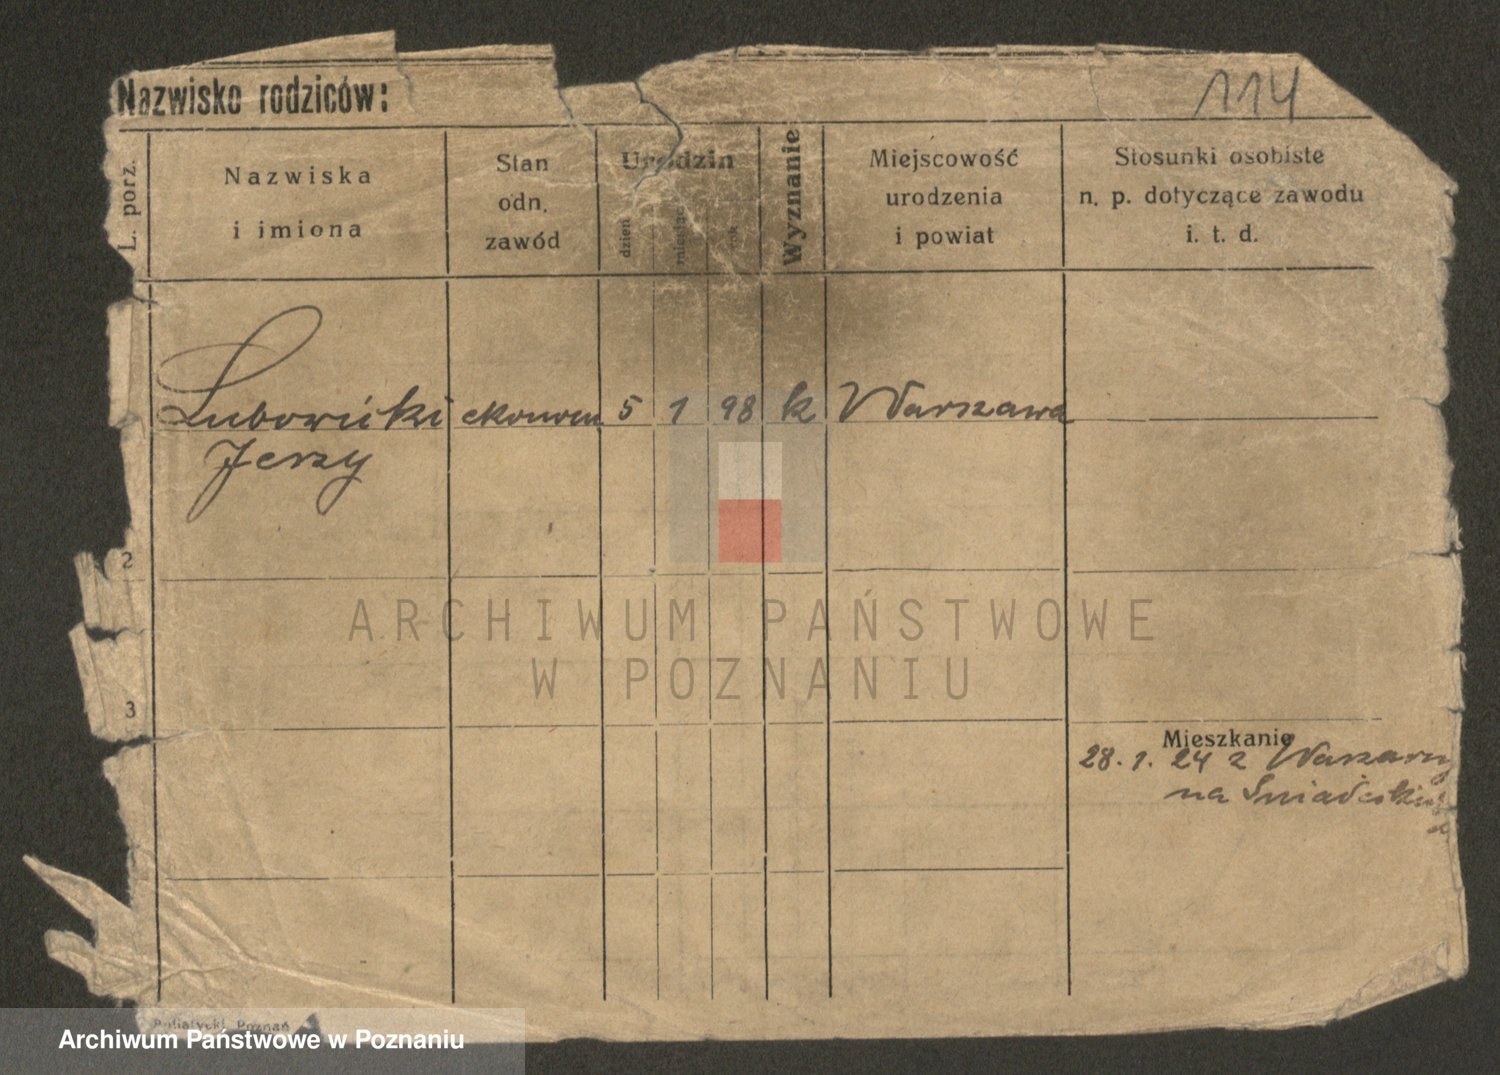 114
Nazwisko rodziców:
L. porz.
Nazwiska
i imiona
Stan
odn.
zawód
Urodzin
dzień
miesiąc
rok
Wyznanie
Miejscowość
urodzenia
i powiat
Stosunki osobiste
n. p. dotyczące zawodu
i. t. d.
Lubowicki ekonom 5 1 98 k Warszawa
Jerzy
2
3
Mieszkanie
28. 1. 24 z Warszawy
na
ARCHIWUM PAŃSTWOWE
W POZNANIU
Poznań
Archiwum Państwowe w Poznaniu